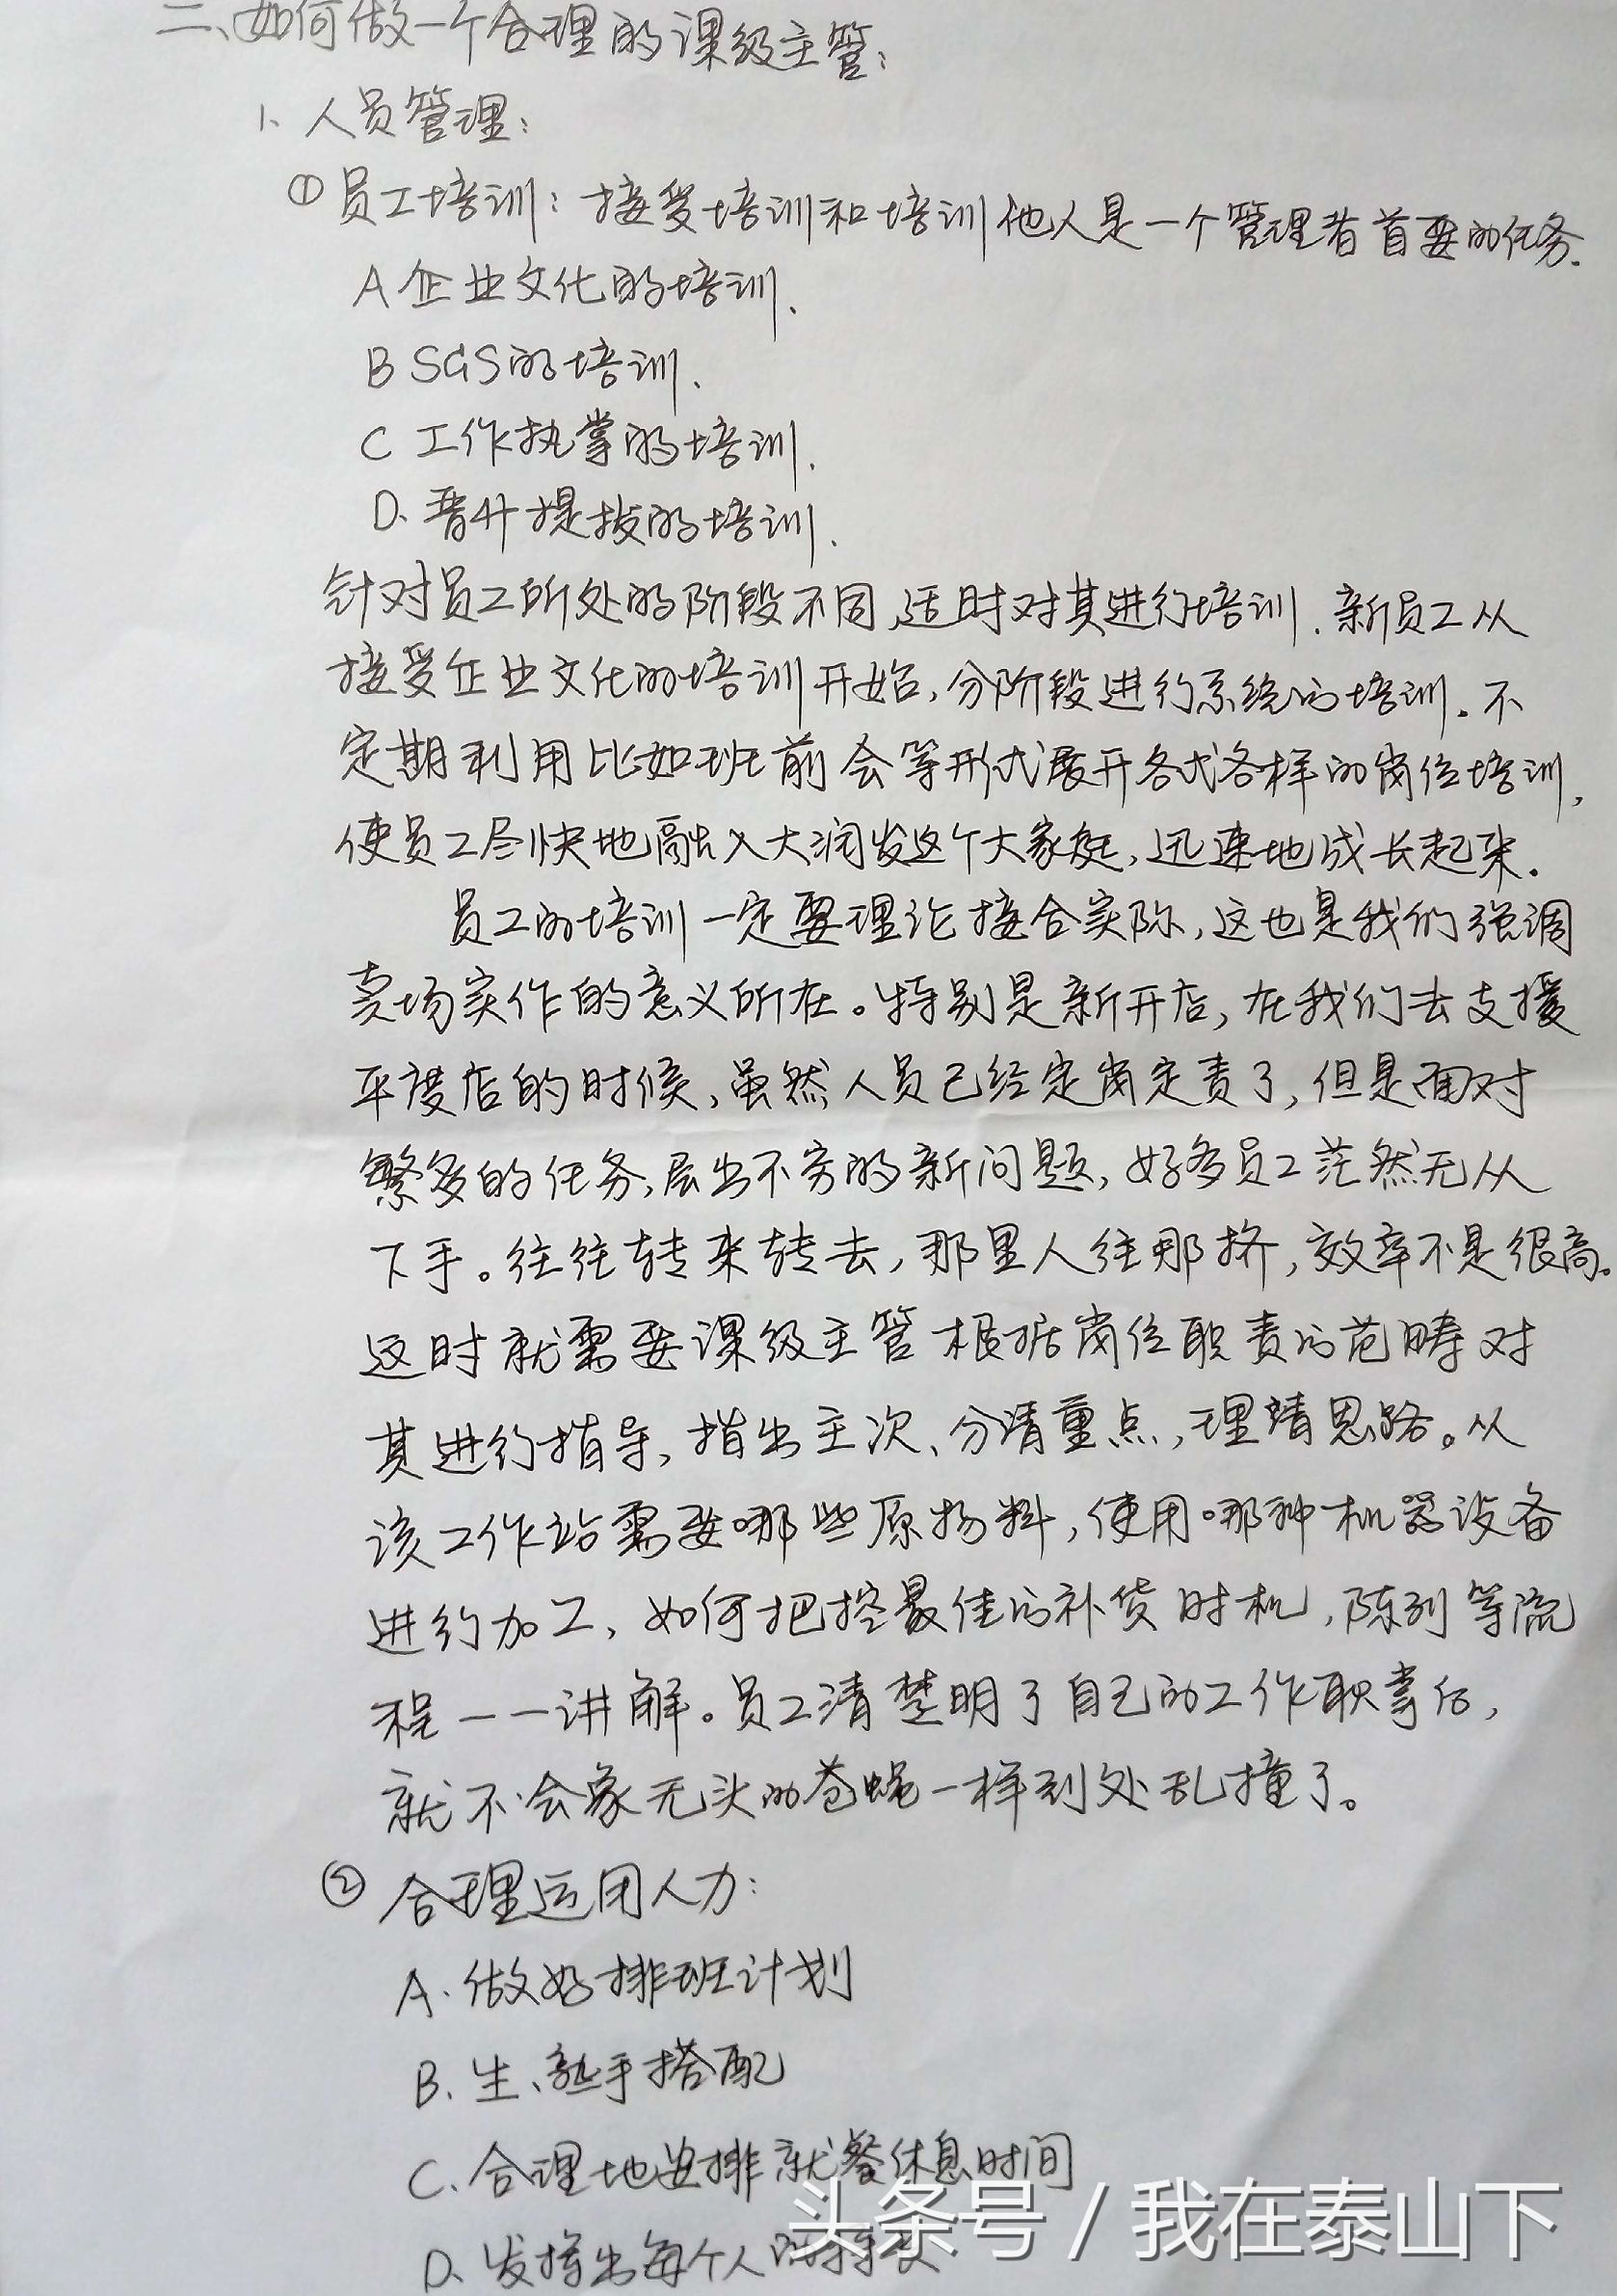 二、如何做一个合理的课级主管：
1、人员管理：
① 员工培训：接受培训和培训他人是一个管理者首要的任务.
A 企业文化的培训、
B SGS的培训、
C 工作执掌的培训.
D、晋升提拔的培训、
针对员工所处的阶段不同,适时对其进行培训.新员工从
接受企业文化的培训开始,分阶段进行系统的培训.不
定期利用比如班前会等形式展开各式各样的岗位培训,
使员工尽快地融入大润发这个大家庭,迅速地成长起来.
员工的培训一定要理论接合实际,这也是我们强调
卖场实作的意义所在。特别是新开店,在我们去支援
平度店的时候,虽然人员已经定岗定责了,但是面对
繁多的任务,层出不穷的新问题,好多员工茫然无从
下手。往往转来转去,那里人往那挤,效率不是很高。
这时就需要课级主管根据岗位职责的范畴对
其进行指导,指出主次、分清重点,理清思路。从
该工作站需要哪些原物料,使用哪种机器设备
进行加工、如何把控最佳的补货时机,陈列等流
程一一讲解。员工清楚明了自己的工作职掌后,
就不会象无头的苍蝇一样到处乱撞了。
② 合理运用人力：
A、做好排班计划
B、生、熟手搭配
C、合理地安排就餐休息时间
D、发挥出每个人的特长
头条号 / 我在泰山下